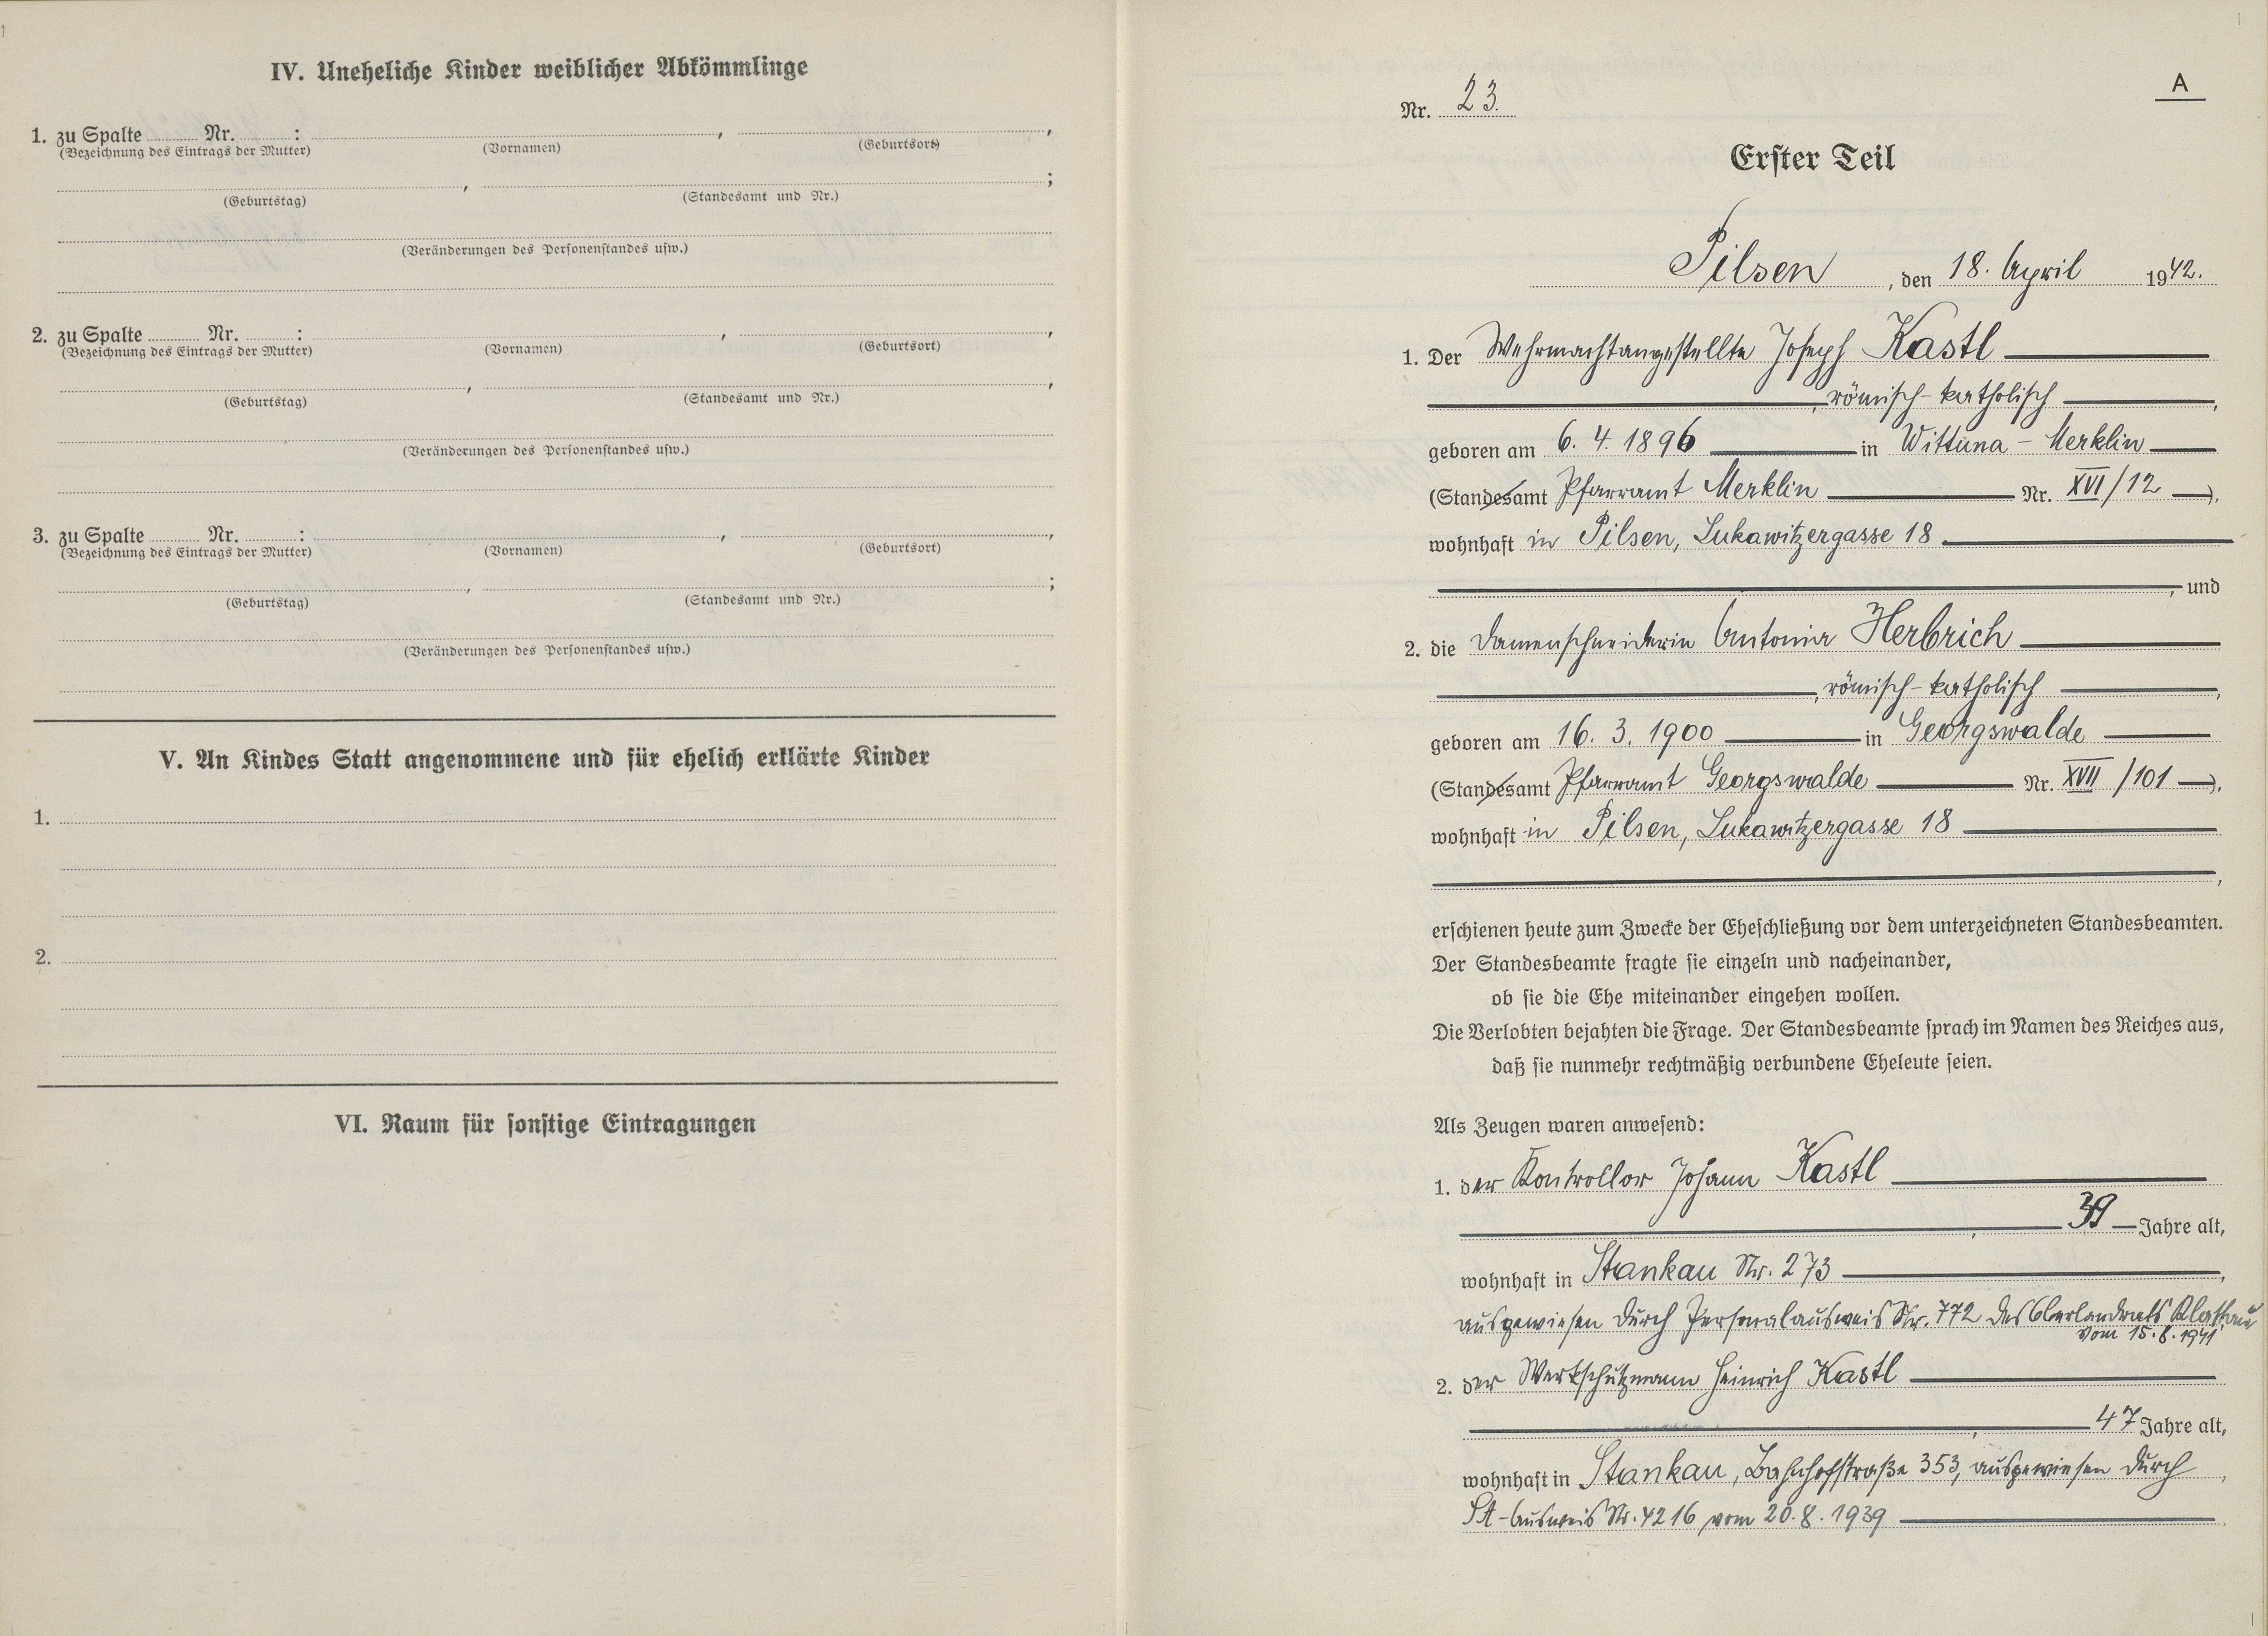 IV. Uneheliche Kinder weiblicher Abkömmlinge
1. zu Spalte ........ Nr. ........ : ........ , ........ ,
(Bezeichnung des Eintrags der Mutter) (Vornamen) (Geburtsort)
........ , ........ ;
(Geburtstag) (Standesamt und Nr.)
(Veränderungen des Personenstandes usw.)
2. zu Spalte ........ Nr. ........ : ........ , ........ ,
(Bezeichnung des Eintrags der Mutter) (Vornamen) (Geburtsort)
........ , ........ ,
(Geburtstag) (Standesamt und Nr.)
(Veränderungen des Personenstandes usw.)
3. zu Spalte ........ Nr. ........ : ........ , ........ ,
(Bezeichnung des Eintrags der Mutter) (Vornamen) (Geburtsort)
........ , ........ ;
(Geburtstag) (Standesamt und Nr.)
(Veränderungen des Personenstandes usw.)
V. An Kindes Statt angenommene und für ehelich erklärte Kinder
1.
2.
VI. Raum für sonstige Eintragungen
A
Nr. 23.
Erster Teil
Pilsen, den 18. April 1942.
1. Der Wehrmachtangestellte Joseph Kastl
, römisch-katholisch ,
geboren am 6. 4. 1896 in Wittuna - Merklin
(Standesamt Pfarramt Merklin Nr. XVI/12 ),
wohnhaft in Pilsen, Lukawitzergasse 18
, und
2. die Damenschneiderin Antonia Herbrich
, römisch-katholisch ,
geboren am 16. 3. 1900 in Georgswalde
(Standesamt Pfarramt Georgswalde Nr. XVII /101 ),
wohnhaft in Pilsen, Lukawitzergasse 18
,
erschienen heute zum Zwecke der Eheschließung vor dem unterzeichneten Standesbeamten.
Der Standesbeamte fragte sie einzeln und nacheinander,
ob sie die Ehe miteinander eingehen wollen.
Die Verlobten bejahten die Frage. Der Standesbeamte sprach im Namen des Reiches aus,
daß sie nunmehr rechtmäßig verbundene Eheleute seien.
Als Zeugen waren anwesend:
1. der Kontrollor Johann Kastl
, 39 Jahre alt,
wohnhaft in Stankau Nr. 273 ,
ausgewiesen durch Personalausweis Nr. 772 des Oberlandrats Klattau
vom 15.8.1941
2. der Werkschutzmann Heinrich Kastl
, 47 Jahre alt,
wohnhaft in Stankau, Bahnhofstraße 353, ausgewiesen durch ,
SA-Ausweis Nr. 4216 vom 20.8.1939 .